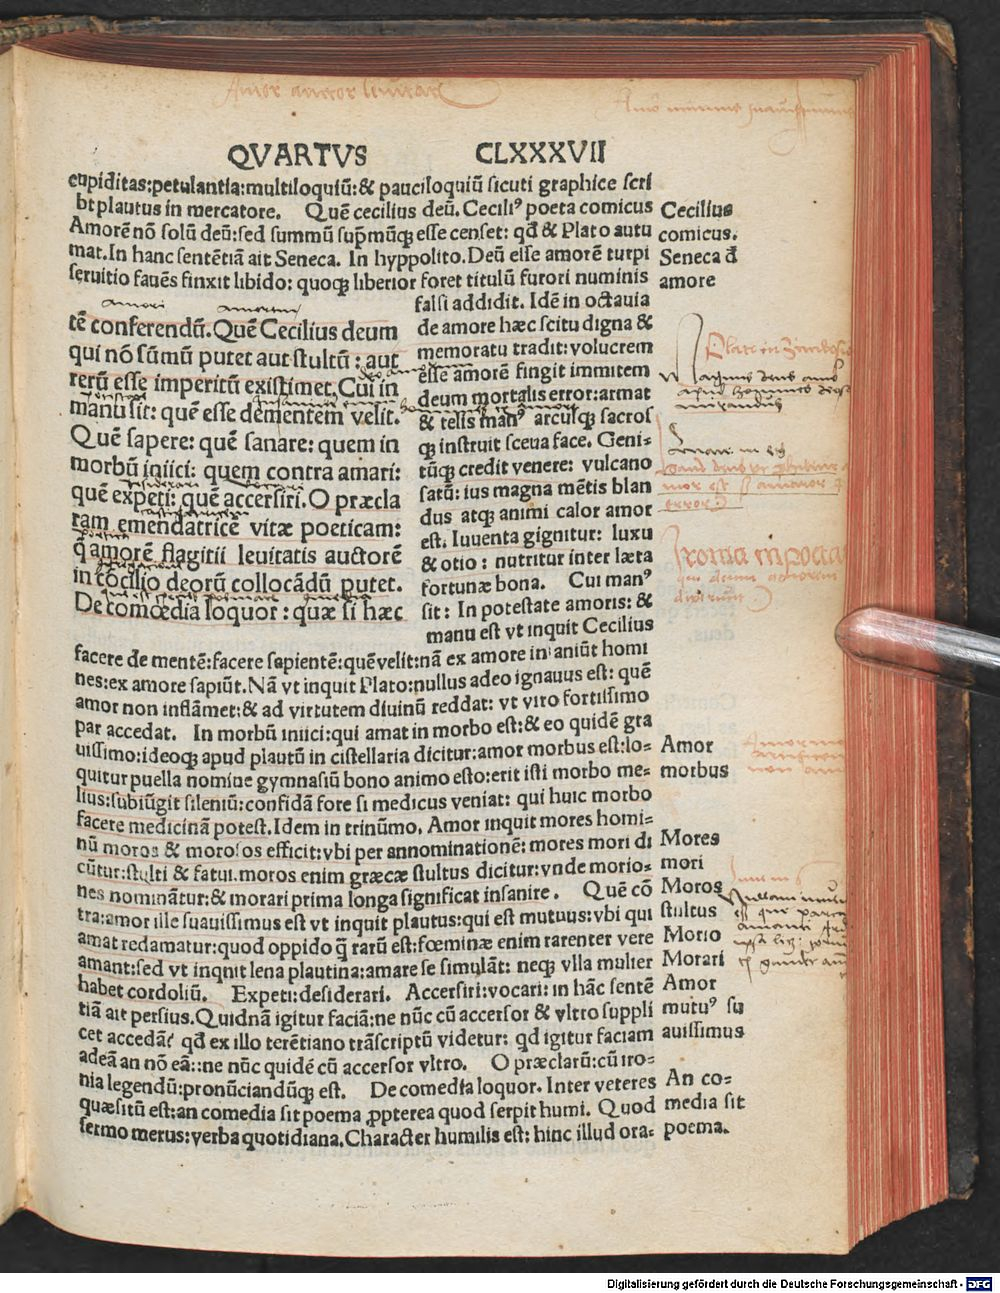 Amor auctor leuitatis
QVARTVS CLXXXVII
cupiditas:petulantia:multiloquiũ:& pauciloquiũ sicuti graphice scri
bt plautus in mercatore. Quẽ cecilius deũ. Ceciliꝰ poeta comicus
Amorẽ nõ solũ deũ:sed summũ sup̃mũq; esse censet: qđ & Plato autu
mat. In hanc sentẽtiã ait Seneca. In hyppolito. Deũ esse amorẽ turpi
seruitio fauẽs finxit libido: quoq; liberior foret titulũ furori numinis
Cecilius
comicus.
Seneca đ
amore
falsi addidit. Idẽ in octauia
de amore hæc scitu digna &
memoratu tradit: volucrem
esse amorẽ fingit immitem
deum mortalis error:armat
& telis manꝰ arcuq; sacros
q; instruit sceua face. Geni-
tũq; credit venere: vulcano
satũ: ius magna mẽtis blan
dus atq; animi calor amor
est. Iuuenta gignitur: luxu
& otio: nutritur inter læta
fortunæ bona. Cui manꝰ
sit: In potestate amoris: &
manu est vt inquit Cecilius
amori amorem
tẽ conferendũ. Quẽ Cecilius deum
qui nõ sũmũ putet aut stultũ: aut
rerũ esse imperitũ existimet. Cui in
manu sit: quẽ esse dementem velit.
Quẽ sapere: quẽ sanare: quem in
morbũ iniici: quem contra amari:
quẽ expeti: quẽ accersiri. O præcla
ram emendatricẽ vitæ poeticam:
q̃ amorẽ flagitii leuitatis auctorẽ
in cõcilio deorũ collocãdũ putet.
De comœdia loquor: quæ si hæc
facere de mentẽ:facere sapientẽ:quẽ velit:nã ex amore in aniũt homi
nes:ex amore sapiũt. Nã vt inquit Plato:nullus adeo ignauus est: quẽ
amor non inflãmet:& ad virtutem diuinũ reddat: vt viro fortissimo
par accedat. In morbũ iniici:qui amat in morbo est:& eo quidẽ gra
uissimo:ideoq; apud plautũ in cistellaria dicitur:amor morbus est:lo-
quitur puella nomine gymnasiũ bono animo esto:erit isti morbo me-
lius:subiũgit sileniũ:confidã fore si medicus veniat: qui huic morbo
facere medicinã potest. Idem in trinũmo. Amor inquit mores homi-
nũ moros & morosos efficit:vbi per annominationẽ: mores mori di
cũtur:stulti & fatui. moros enim græcæ stultus dicitur:vnde morio-
nes nominãtur:& morari prima longa significat insanire. Quẽ cõ
tra:amor ille suauissimus est vt inquit plautus:qui est mutuus:vbi qui
amat redamatur:quod oppido q̃ rarũ est:fœminæ enim rarenter vere
amant:sed vt inquit lena plautina:amare se simulãt: neq; vlla mulier
habet cordoliũ. Expeti:desiderari. Accersiri:vocari: in hãc sentẽ
tiã ait persius. Quidnã igitur faciã:ne nũc cũ accersor & vltro suppli
cet accedã? qđ ex illo terẽtiano trãscriptũ videtur: qđ igitur faciam
adeã an nõ eã::ne nũc quidẽ cũ accersor vltro. O præclarũ:cũ iro-
nia legendũ:pronũciandũq; est. De comedia loquor. Inter veteres
quæsitũ est:an comedia sit poema ꝓpterea quod serpit humi. Quod
sermo merus:verba quotidiana. Character humilis est: hinc illud ora-
Amor
morbus
Mores
mori
Moros
stultus
Morio
Morari
Amor
mutuꝰ su
auissimus
An co-
media sit
poema.
Digitalisierung gefördert durch die Deutsche Forschungsgemeinschaft - DFG